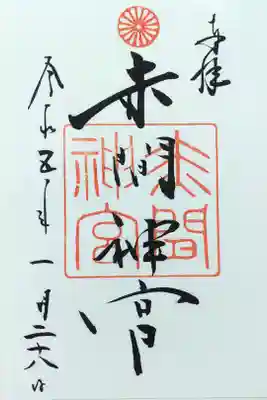 奉拝
赤間神宮
赤間神宮
令和五年一月二十八日